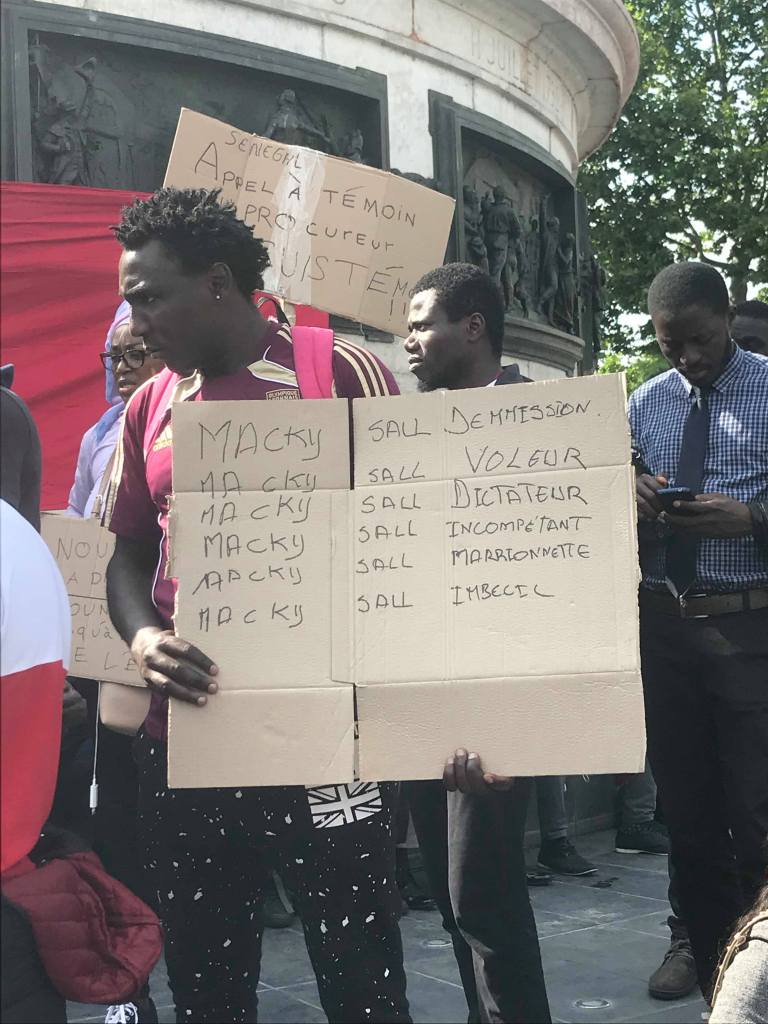 11 JUILLET
SENEGAL
APPEL À TÉMOIN
PROCUREUR
MACKY SALL DEMMISSION.
MACKY SALL VOLEUR
MACKY SALL DICTATEUR
MACKY SALL INCOMPÉTANT
MACKY SALL MARRIONNETTE
MACKY SALL IMBECIL
NOU
A D
OUN
QU'À
E LE